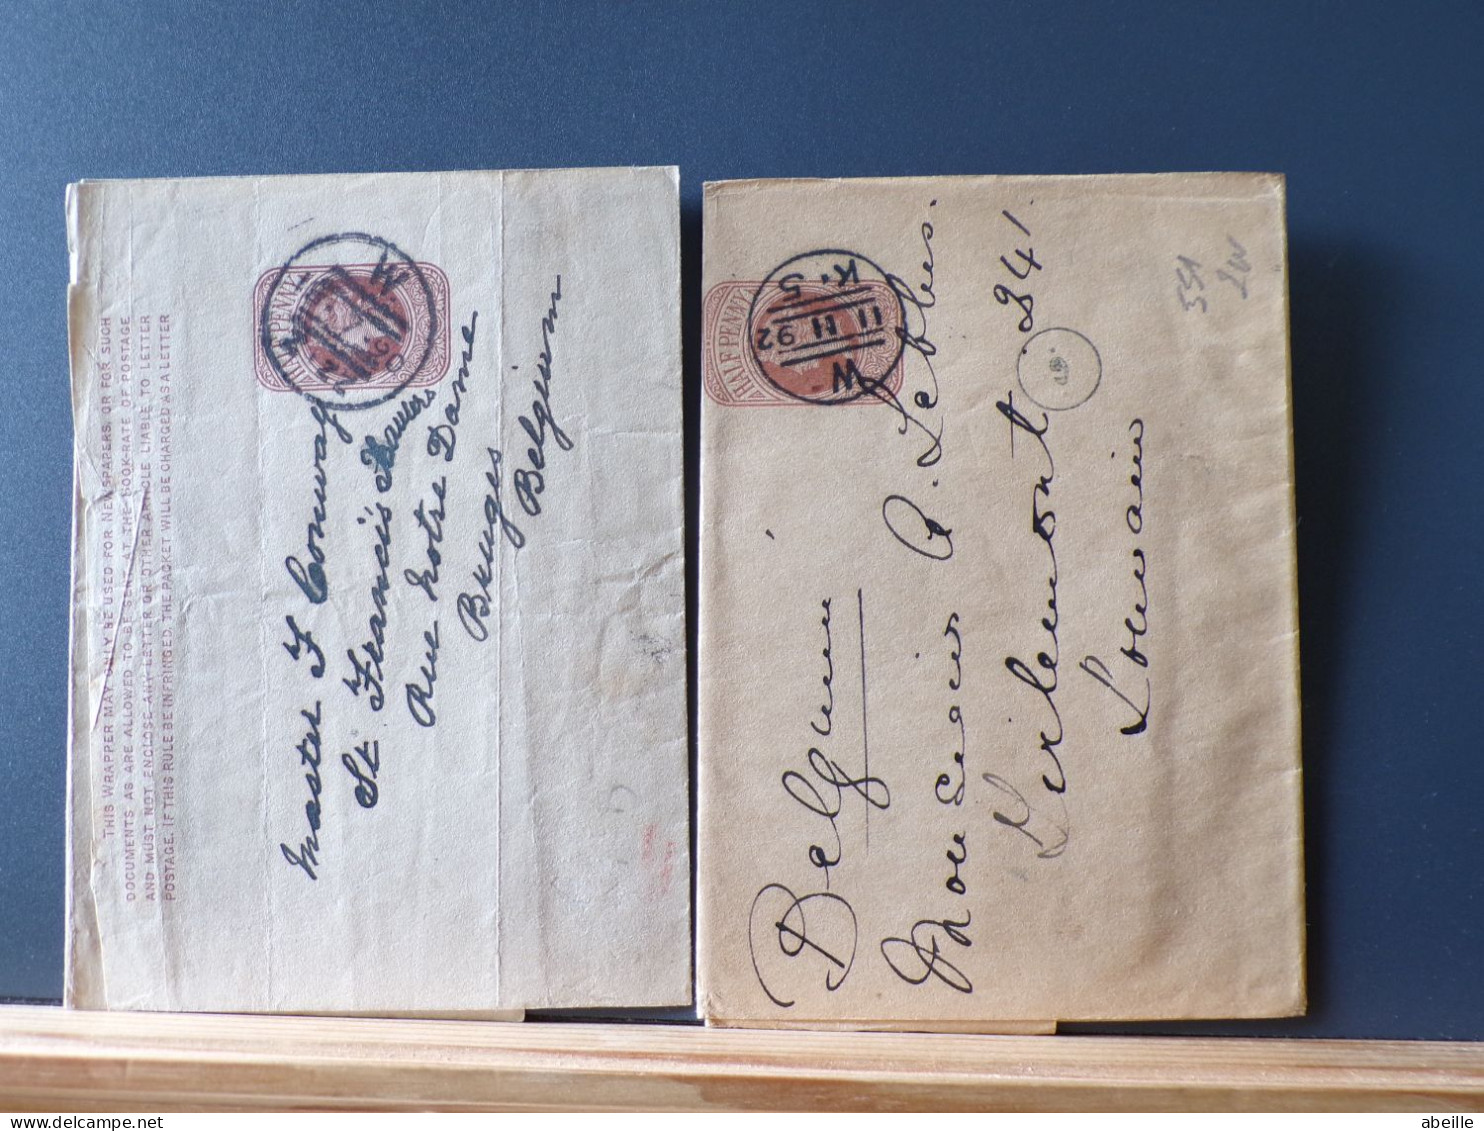 THIS WRAPPER MAY ONLY BE USED FOR NEWSPAPERS, OR FOR SUCH
DOCUMENTS AS ARE ALLOWED TO BE SENT AT THE BOOK-RATE OF POSTAGE
AND MUST NOT ENCLOSE ANY LETTER OR OTHER ARTICLE LIABLE TO LETTER
POSTAGE. IF THIS RULE BE INFRINGED THE PACKET WILL BE CHARGED AS A LETTER
HALFPENNY
W
Master F Conway
St. Francis Xaviers
Rue Notre Dame
Bruges
Belgium
HALFPENNY
W
11
92
K.5
Belgium
Monsieur A. Lebbus.
Tirlemont St 41.
Louvain
551
abeille